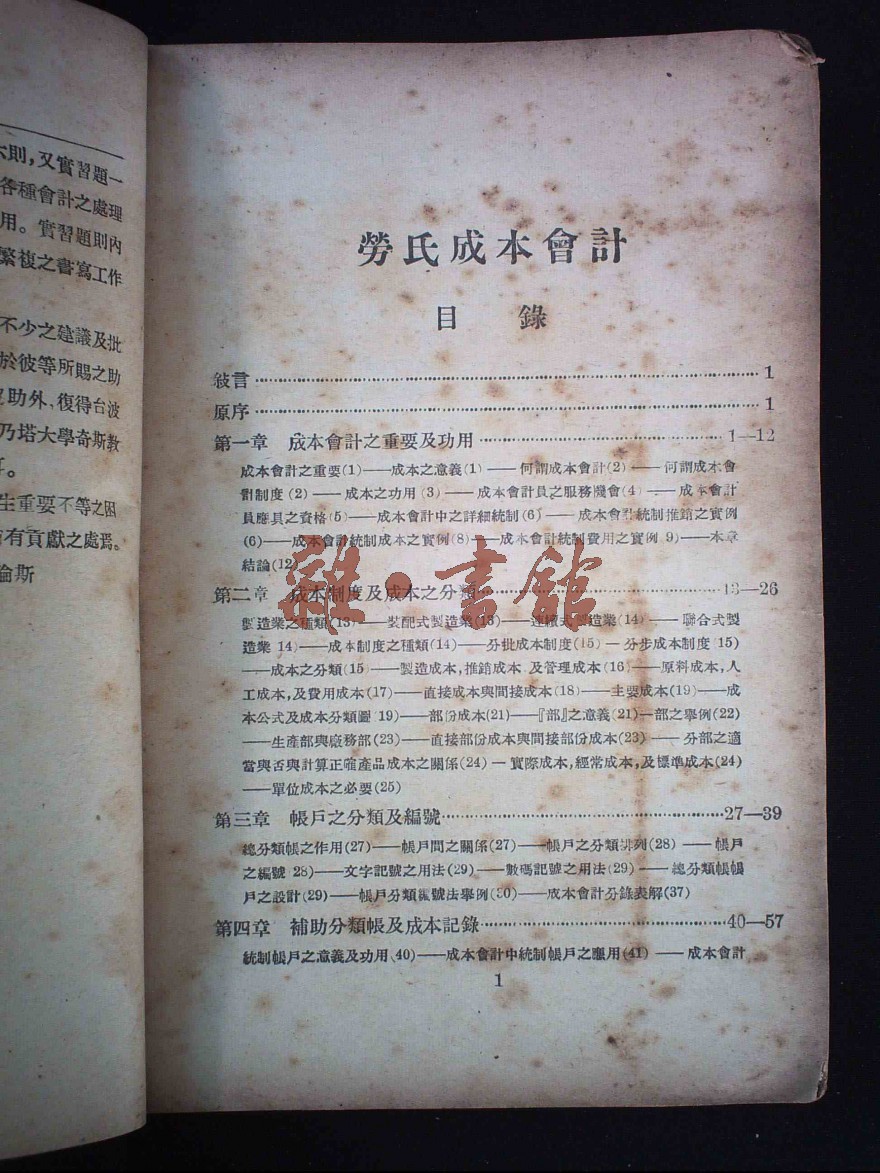 六則，又實習題一
各種會計之處理
用。實習題則內
繁複之書寫工作
不少之建議及批
於彼等所賜之助
助外、復得台波
乃塔大學奇斯教
生重要不等之困
有貢獻之處焉。
倫斯
勞氏成本會計
目 錄
敍言……1
原序……1
第一章 成本會計之重要及功用……1—12
成本會計之重要(1)——成本之意義(1)——何謂成本會計(2)——何謂成本會
計制度(2)——成本之功用(3)——成本會計員之服務機會(4)——成本會計
員應具之資格(5)——成本會計中之詳細統制(6)——成本會計統制推銷之實例
(6)——成本會計統制成本之實例(8)——成本會計統制費用之實例 9)——本章
結論(12)
第二章 成本制度及成本之分類……13—26
製造業之種類(13)——裝配式製造業(13)——連續式製造業(14)——聯合式製
造業 14)——成本制度之種類(14)——分批成本制度(15)—分步成本制度 15)
——成本之分類(15)——製造成本，推銷成本 及管理成本(16)——原料成本，人
工成本，及費用成本(17)——直接成本與間接成本(18)——主要成本(19)——成
本公式及成本分類圖(19)——部份成本(21)——『部』之意義(21)—部之舉例(22)
——生產部與廠務部(23)——直接部份成本與間接部份成本(23)——分部之適
當與否與計算正確產品成本之關係(24)—實際成本，經常成本，及標準成本(24)
——單位成本之必要(25)
第三章 帳戶之分類及編號……27—39
總分類帳之作用(27)——帳戶間之關係(27)——帳戶之分類排列(28)——帳戶
之編號 28)——文字記號之用法(29)——數碼記號之用法(29)——總分類帳帳
戶之設計(29)——帳戶分類編號法舉例(30)——成本會計分錄表解(37)
第四章 補助分類帳及成本記錄……40—57
統制帳戶之意義及功用(40)——成本會計中統制帳戶之應用(41)——成本會計
1
雜·書館